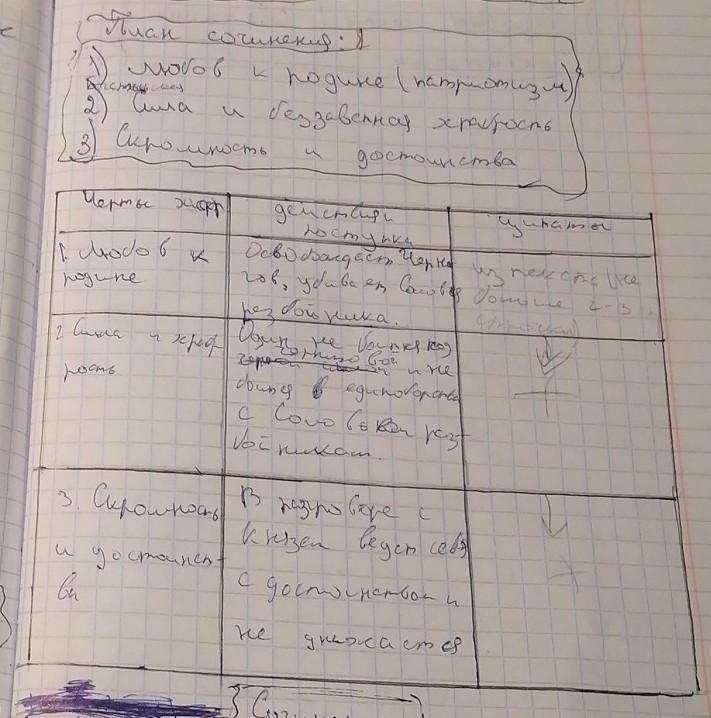 План сочинения:
1) Любов к родине (патриотизм)
2) Сила и беззаветная храбрость
3) Скромность и достоинства
Черты
действия
поступка
цитаты
1. Любов к
родине
Освобождает Черни
гов, убивает Соловья
разбойника.
из текста (не
больше 2-3
2 Сила и храб
рость
Один не боится
и не
боится в единоборстве
с Соловьем раз-
бойникам.
3. Скромность
и достоинст-
ва
В разговоре с
Князем ведет себя
с достоинством и
не унижается